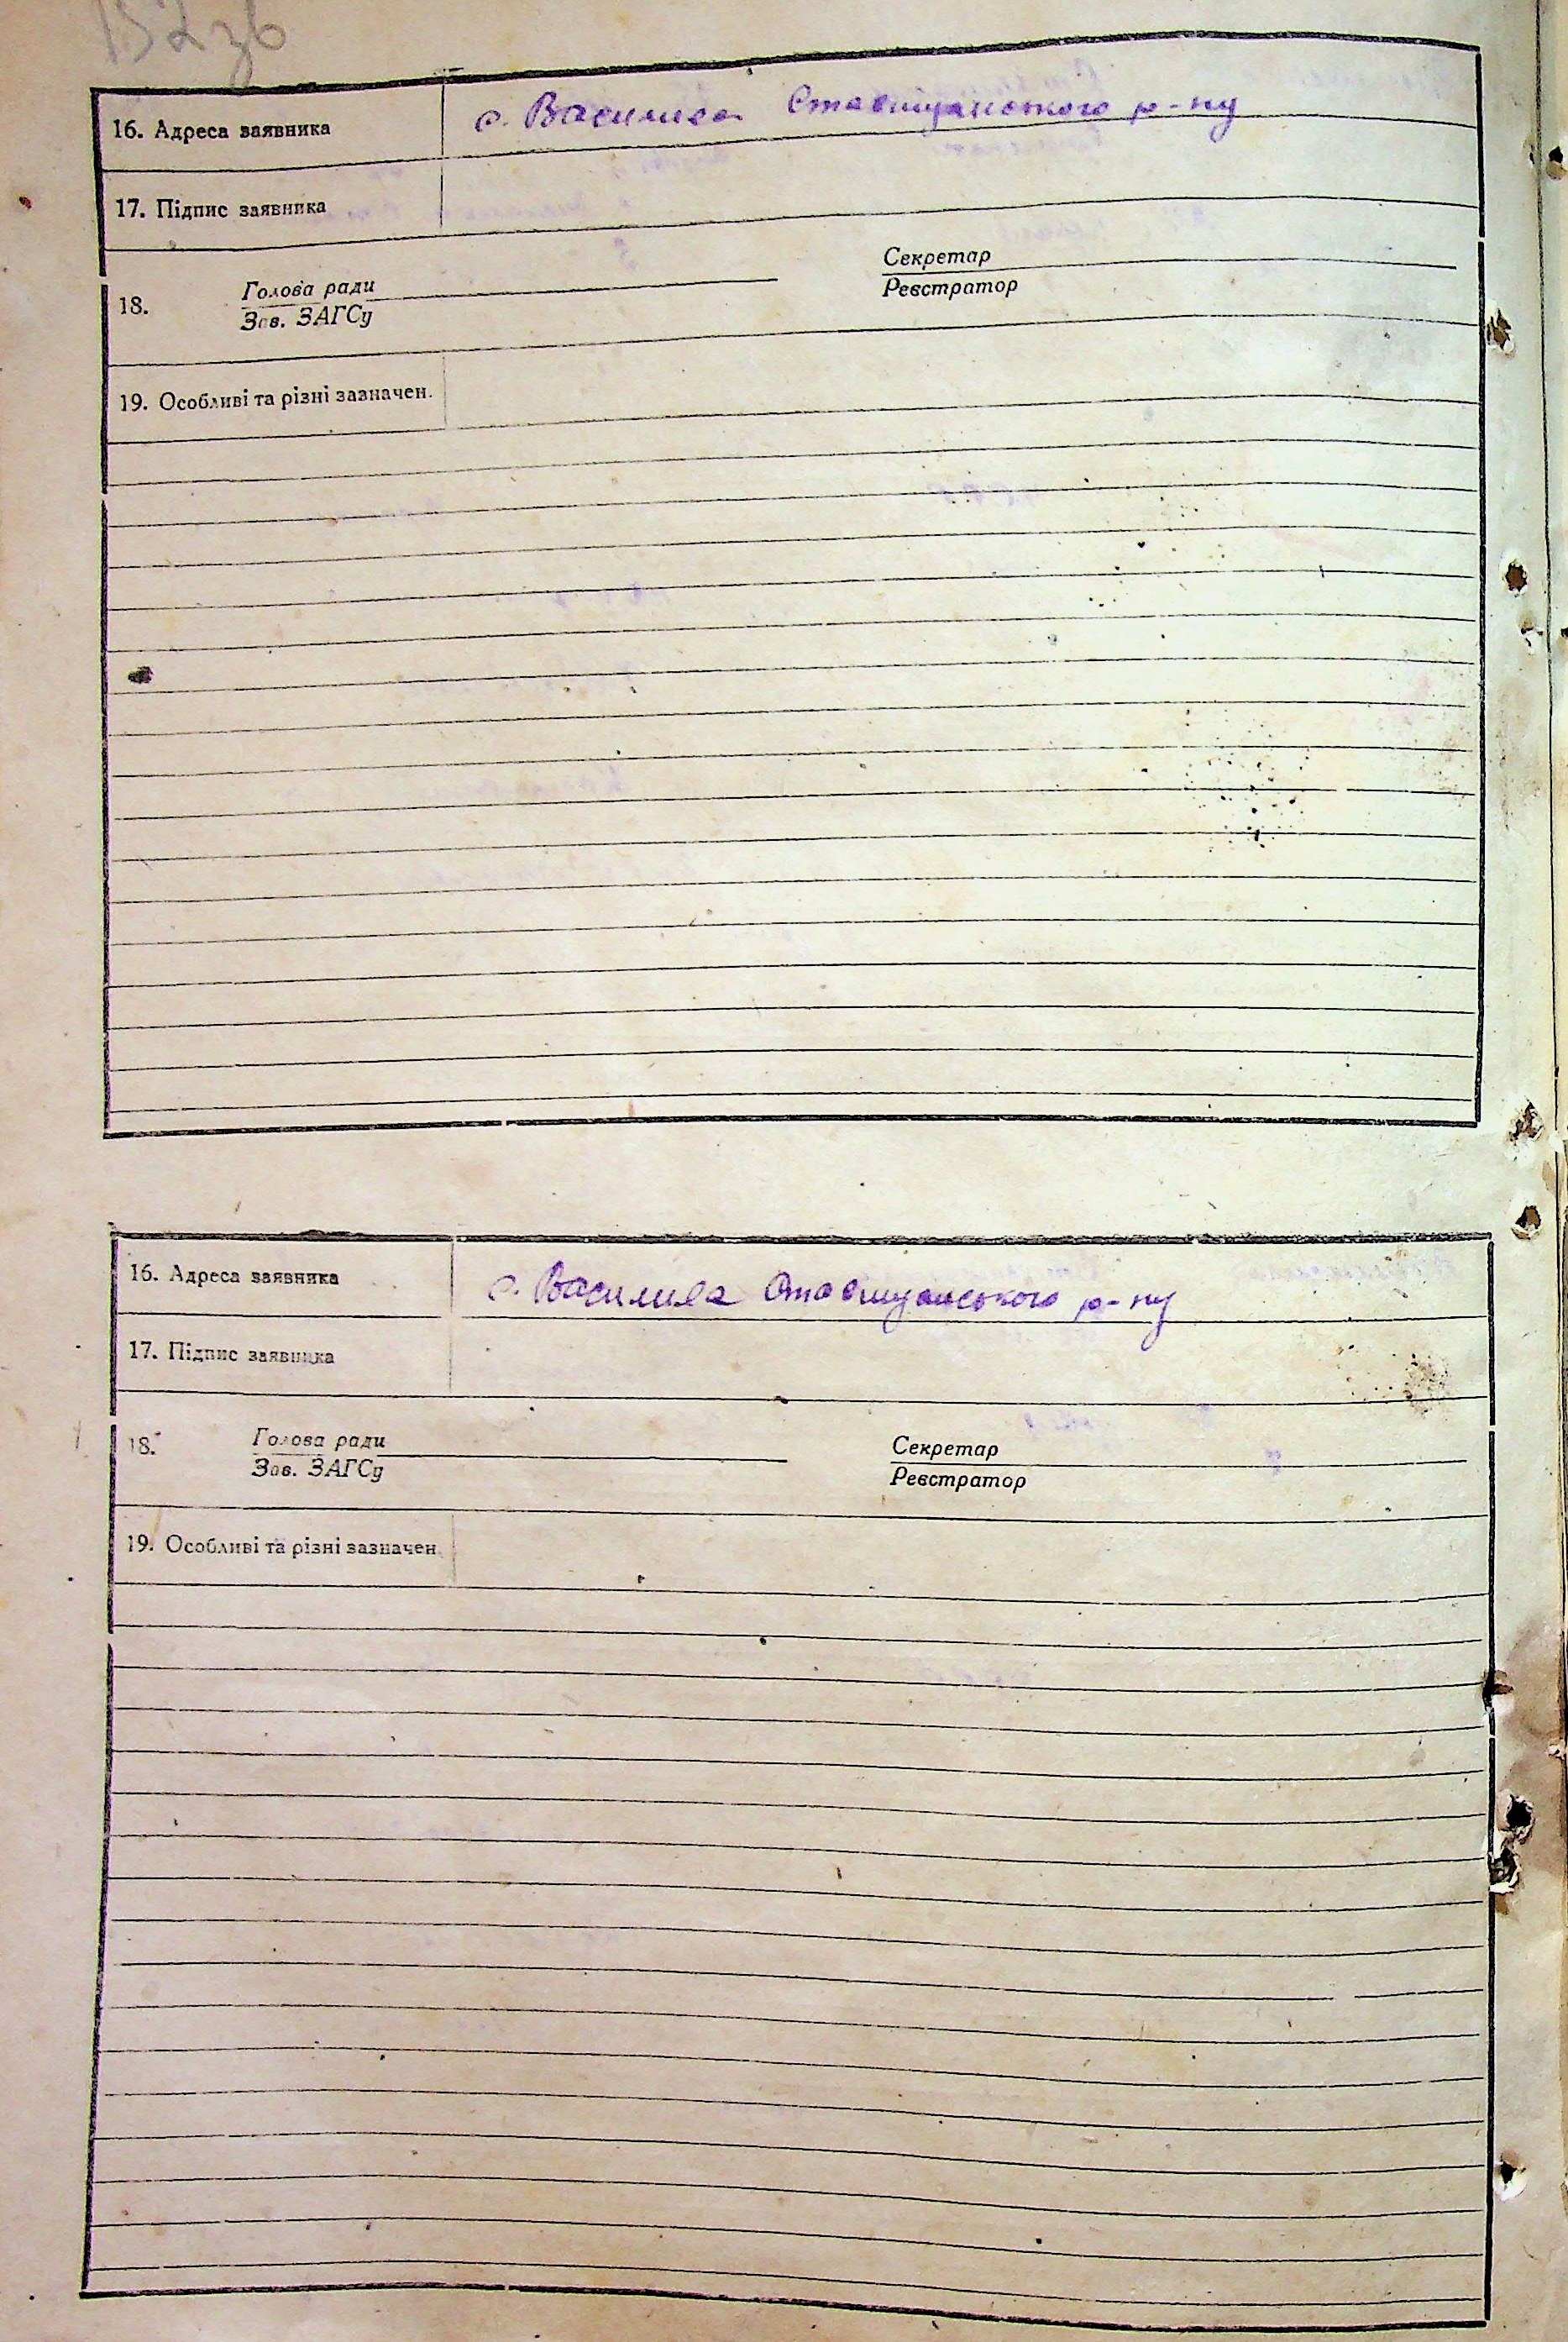 152 зв
16. Адреса заявника с. Василиса Ставищанського р-ну
17. Підпис заявника
18. Голова ради Секретар
Зав. ЗАГСу Реєстратор
19. Особливі та різні зазначен.
16. Адреса заявника с. Василиса Ставищанського р-ну
17. Підпис заявника
18. Голова ради Секретар
Зав. ЗАГСу Реєстратор
19. Особливі та різні зазначен